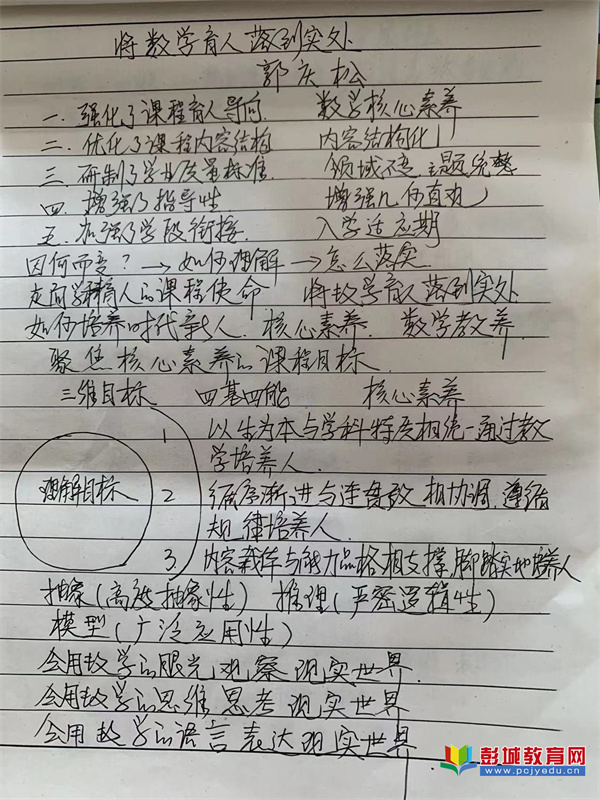 将数学育人落到实处
郭庆松
一. 强化了课程育人导向 数学核心素养
二. 优化了课程内容结构 内容结构化
三. 研制了学业质量标准. 领域不变 主题完整
四. 增强了指导性 增强几何直观
五. 加强了学段衔接. 入学适应期
因何而变? → 如何理解 → 怎么落实
走向学科育人的课程使命 将数学育人落到实处
如何培养时代新人. 核心素养. 数学教养.
聚焦核心素养的课程目标.
三维目标 四基四能 核心素养
1 以生为本与学科特质相统一通过教
学培养人.
理解目标 2 循序渐进与连贯 相协调. 遵循
规律培养人.
3 内容载体与能力品格相支撑. 脚踏实地培养人
抽象(高度抽象性) 推理(严密逻辑性)
模型(广泛应用性)
会用数学的眼光观察现实世界
会用数学的思维思考现实世界
会用数学的语言表达现实世界
彭城教育网
www.pcjyedu.cn